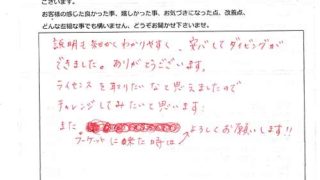 ございます。
お客様の感じた良かった事、嬉しかった事、お気づきになった点、改善点、
どんな些細な事でも構いません、どうぞお聞かせ下さいませ。
説明も細かくわかりやすく、安心してダイビングが
できました。ありがとうございます。
ライセンスを取りたいなと思えましたので
チャレンジしてみたいと思います!
また
プーケットに来た時は よろしくお願いします!!